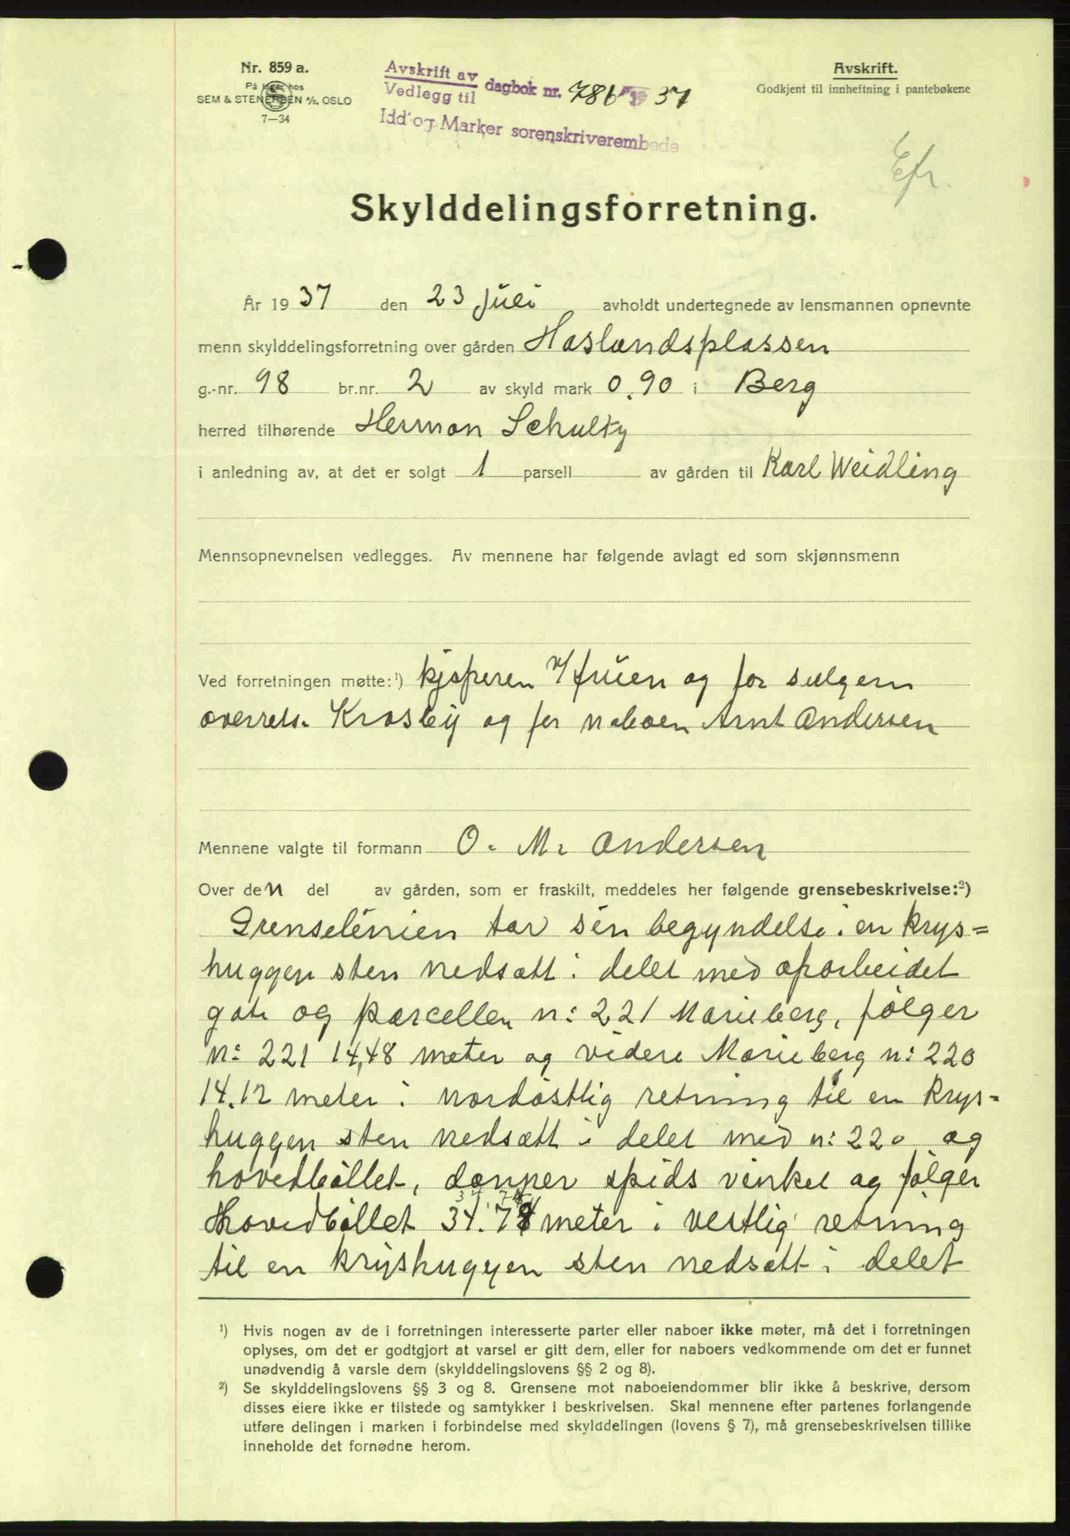 Nr. 859 a.
På lager hos
SEM & STENERSEN A/S, OSLO
7—34
Avskrift av
Vedlegg til dagbok nr. 786 19 37
Idd og Marker sorenskriverembede
Avskrift.
Godkjent til innheftning i pantebøkene
Efr.
Skylddelingsforretning.
År 19 37 den 23 Juli avholdt undertegnede av lensmannen opnevnte
menn skylddelingsforretning over gården Haslandsplassen
g.-nr. 98 br.nr. 2 av skyld mark 0.90 i Berg
herred tilhørende Herman Schultz
i anledning av, at det er solgt 1 parsell av gården til Karl Weidling
Mennsopnevnelsen vedlegges. Av mennene har følgende avlagt ed som skjønnsmenn
Ved forretningen møtte:¹) kjøperen m/fruen og for sælgern
overrets. Krosby og for naboen Arnt Andersen
Mennene valgte til formann O. M. Andersen
Over den del av gården, som er fraskilt, meddeles her følgende grensebeskrivelse:²)
Grenselinien tar sin begyndelse i en krys=
huggen sten nedsatt i delet med oparbeidet
gate og parcellen n: 221 Marieberg, følger
n: 221 14,48 meter og videre Marieberg n: 220
14.12 meter i nordøstlig retning til en krys=
huggen sten nedsatt i delet med n: 220 og
hovedbøllet, danner spids vinkel og følger
Hovedbøllet 34.78 meter i vestlig retning
til en kryshuggen sten nedsatt i delet
¹) Hvis nogen av de i forretningen interesserte parter eller naboer ikke møter, må det i forretningen
oplyses, om det er godtgjort at varsel er gitt dem, eller for naboers vedkommende om det er funnet
unødvendig å varsle dem (skylddelingslovens §§ 2 og 8).
²) Se skylddelingslovens §§ 3 og 8. Grensene mot naboeiendommer blir ikke å beskrive, dersom
disses eiere ikke er tilstede og samtykker i beskrivelsen. Skal mennene efter partenes forlangende
utføre delingen i marken i forbindelse med skylddelingen (lovens § 7), må grensebeskrivelsen tillike
inneholde det fornødne herom.